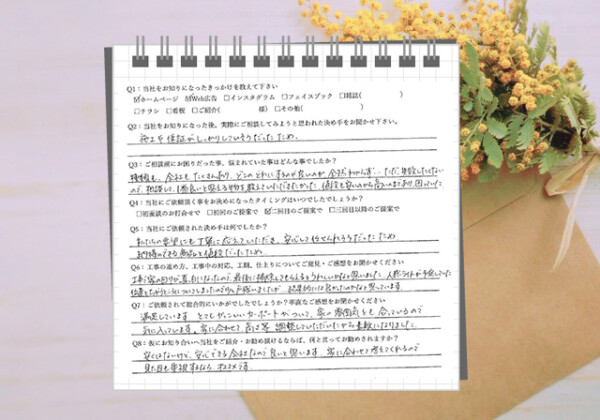 Q1：当社をお知りになったきっかけを教えて下さい
☑ホームページ ☑Web広告 □インスタグラム □フェイスブック □雑誌( )
□チラシ □看板 □ご紹介( 様) □その他( )
Q2：当社をお知りになった後、実際にご相談してみようと思われた決め手をお聞かせ下さい。
施工や保証がしっかりしていそうだったため。
Q3：ご相談前にお困りだった事、悩まれていた事はどんな事でしたか？
種類も、会社も、たくさんあり、どこのどれにするのが良いのか、全然わからず…ただ、失敗したくない
ので、相談して、1番良いと思える物を教えていただきたかった。値段も安いのから高いのまであり、困っていた
Q4：当社にご依頼頂く事をお決めになったタイミングはいつでしたでしょうか？
□初面談のお打合せで □初回のご提案で ☑二回目のご提案で □三回目以降のご提案で
Q5：当社にご依頼された決め手は何でしたか？
私たちの要望にも丁寧に応えていただき、安心して任せられそうだったため
納得のできる商品と値段だったため
Q6：工事の進め方、工事中の対応、工期、仕上りについてご意見・ご感想をお聞かせください
工事
Q7：ご依頼されて総合的にいかがでしたでしょうか？率直なご感想をお聞かせください
満足しています とてもかっこいいカーポートがついて、家の雰囲気とも合っているので
気に入っています。家に合わせて、高さ等、調整していただいたから素敵になりました。
Q8：仮にお知り合いへ当社をご紹介・お勧め頂けるならば、何と言ってお勧めされますか？
安くはないけど、安心できる会社なので良いと思います。家に合わせて考えてくれるので
見た目も重視するなら、オススメです